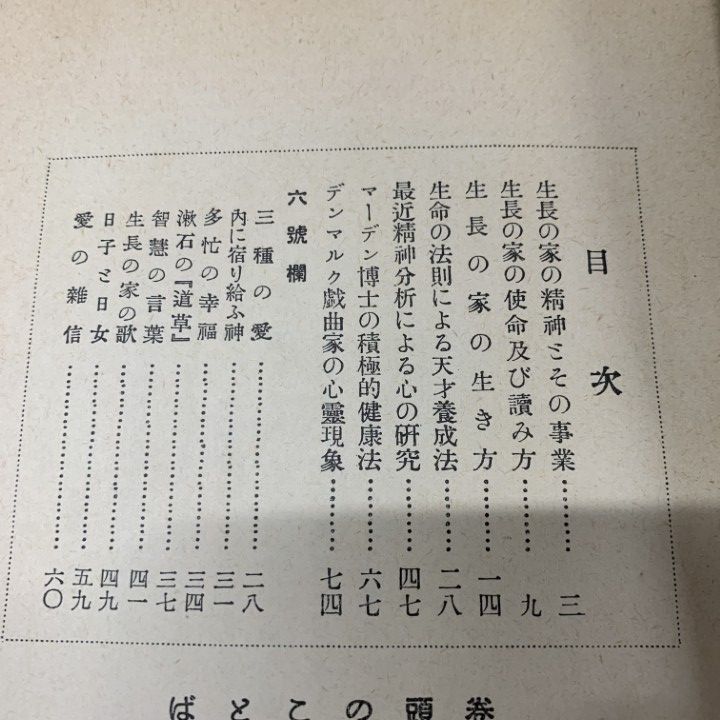 目次
生長の家の精神とその事業………三
生長の家の使命及び讀み方………九
生長の家の生き方………一四
生命の法則による天才養成法………二八
最近精神分析による心の硏究………四七
マーデン博士の積極的健康法………六七
デンマルク戲曲家の心靈現象………七四
六號欄
三種の愛………二八
內に宿り給ふ神………三一
多忙の幸福………三四
漱石の『道草』………三七
智慧の言葉………四一
生長の家の歌………四九
日子と日女………五九
愛の雜信………六〇
ばとこの頭卷